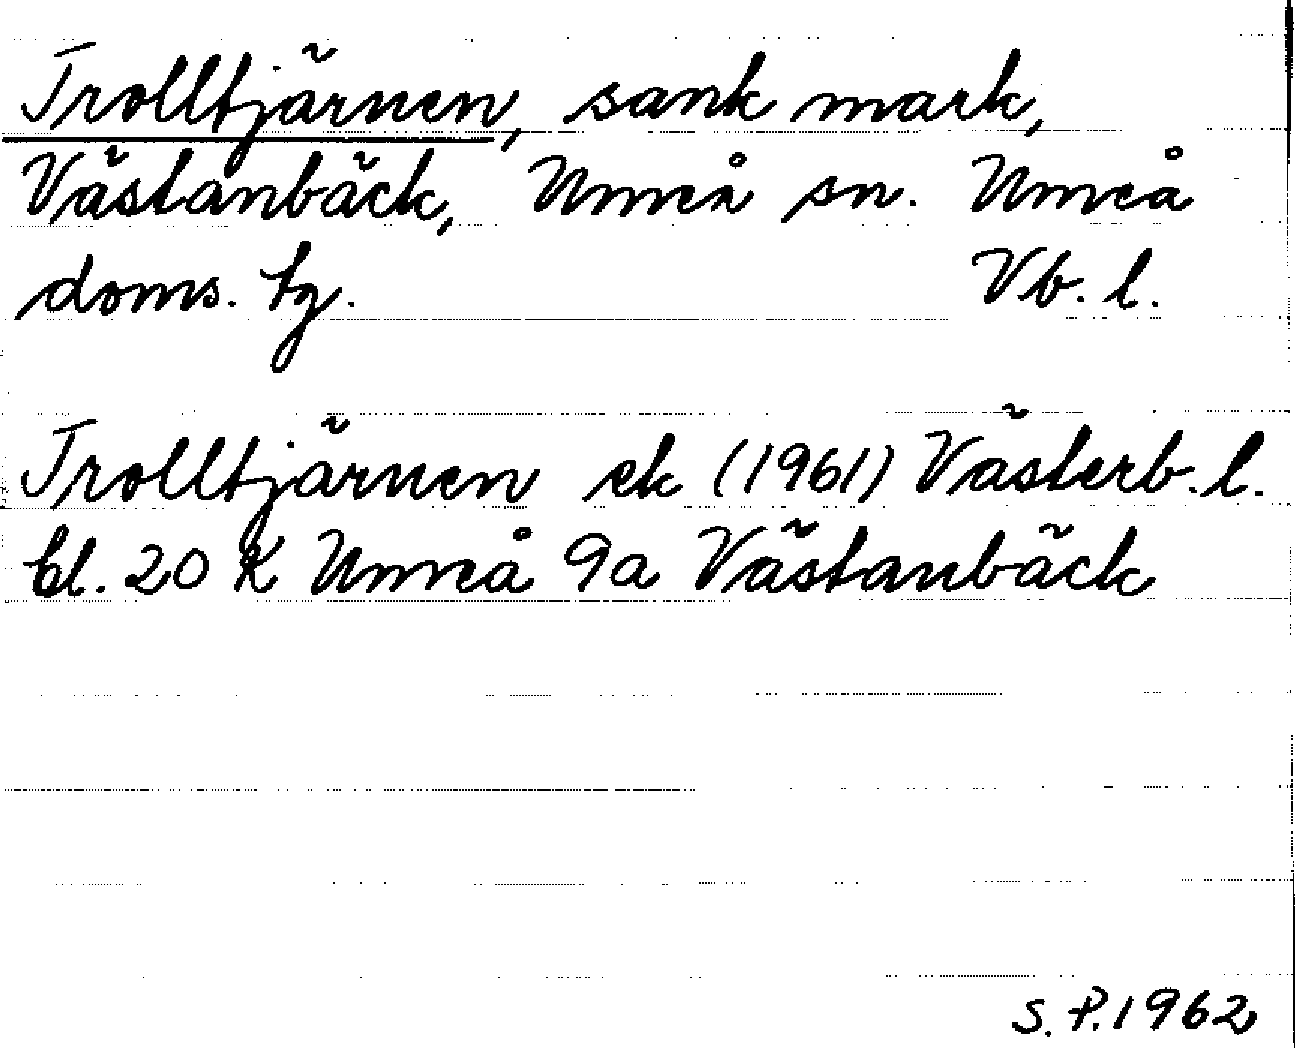 Trolltjärnen, sank mark,
Västanbäck, Umeå sn. Umeå
doms. tg. Vb. l.
Trolltjärnen ek (1961) Västerb. l.
bl. 20 K Umeå 9a Västanbäck
S. P. 1962